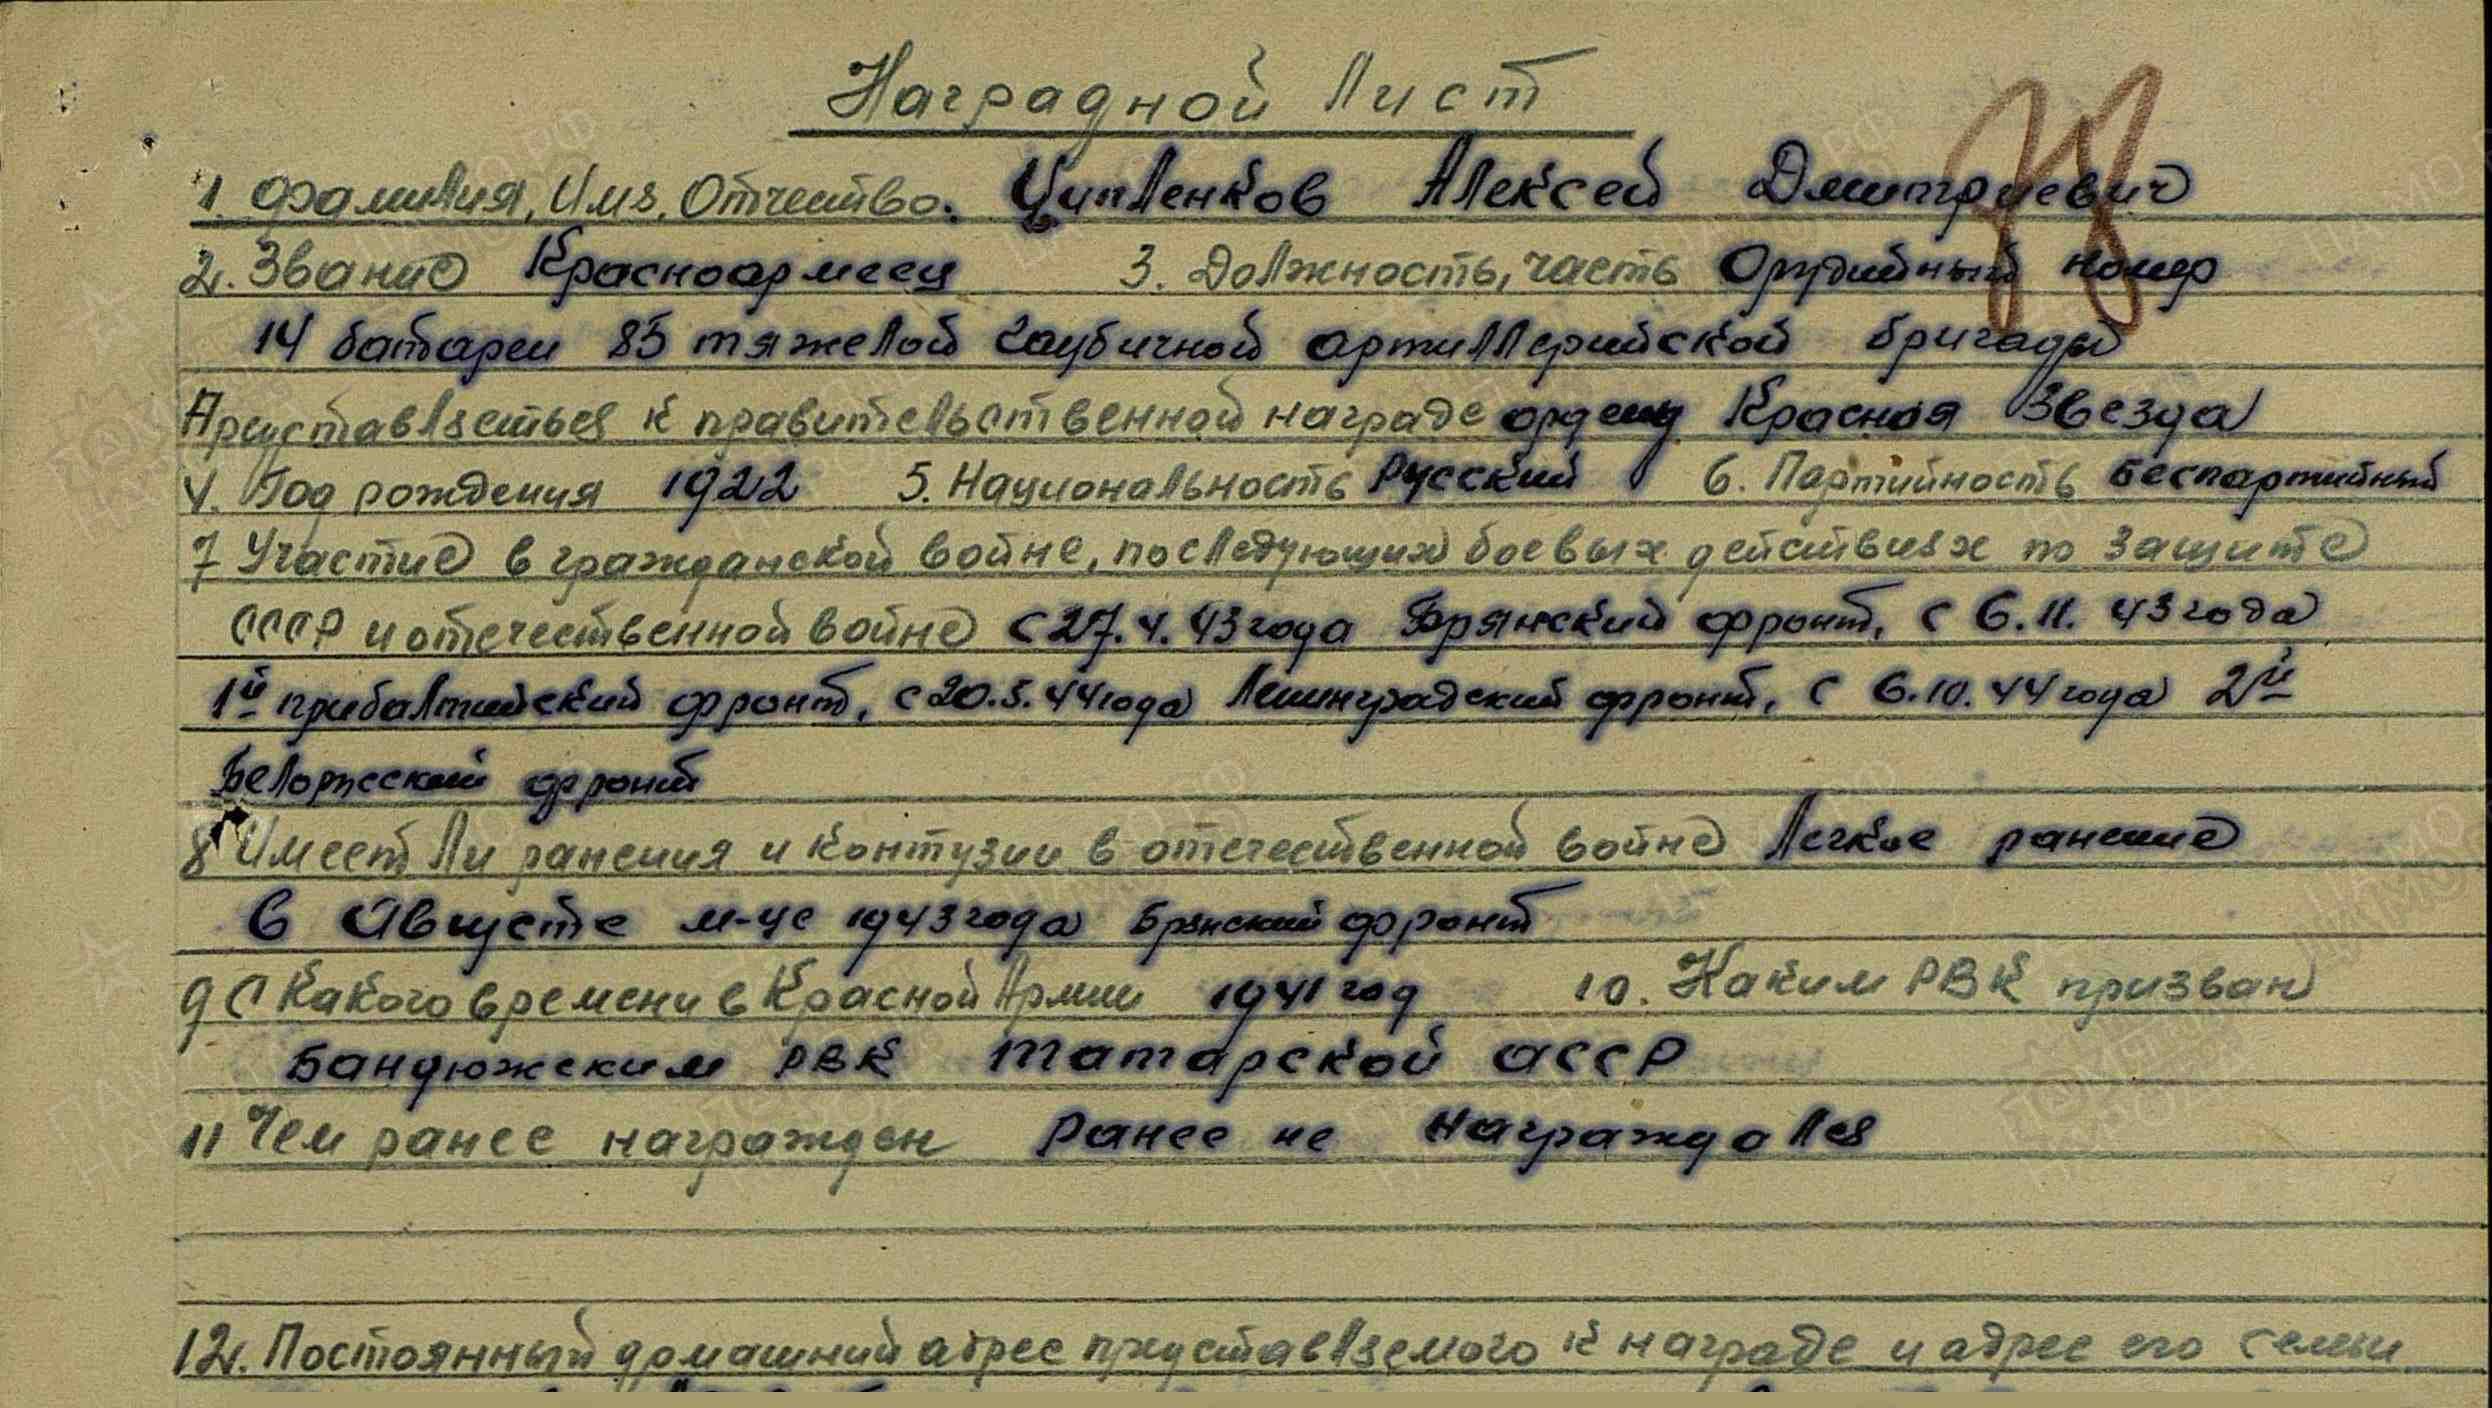 Наградной Лист
1. Фамилия, Имя, Отчество. Ципленков Алексей Дмитриевич
2. Звание Красноармеец 3. Должность, часть Орудийный номер
14 батареи 85 тяжелой гаубичной артиллерийской бригады
Представляеться к правительственной награде ордену Красная Звезда
4. Год рождения 1922 5. Национальность Русский 6. Партийность Беспартийный
7 Участие в гражданской войне, последующих боевых действиях по защите
СССР и отечественной войне с 27.4.43 года Брянский фронт, с 6.11.43 года
1й прибалтийский фронт, с 20.5.44 года Ленинградский фронт, с 6.10.44 года 2й
Белорусский фронт
8 Имеет ли ранения и контузии в отечественной войне Легкое ранение
в Августе м-це 1943 года Брянский фронт
9 С какого времени в Красной Армии 1941 год 10. Каким РВК призван
Бандюжским РВК Татарской АССР
11 Чем ранее награжден Ранее не награждался
12. Постоянный домашний адрес представляемого к награде и адрес его семьи